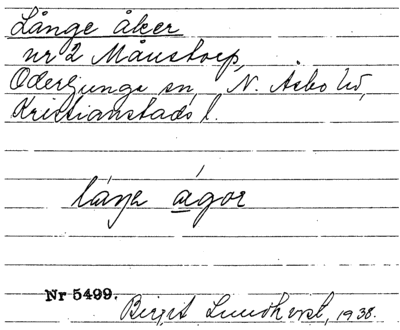 Långe åker
nr 2 Månstorp,
Oderljunga sn, N. Åsbo hd,
Kristianstads l.
låŋa ágor
Nr 5499.
Birgit Lundkvist, 1938.